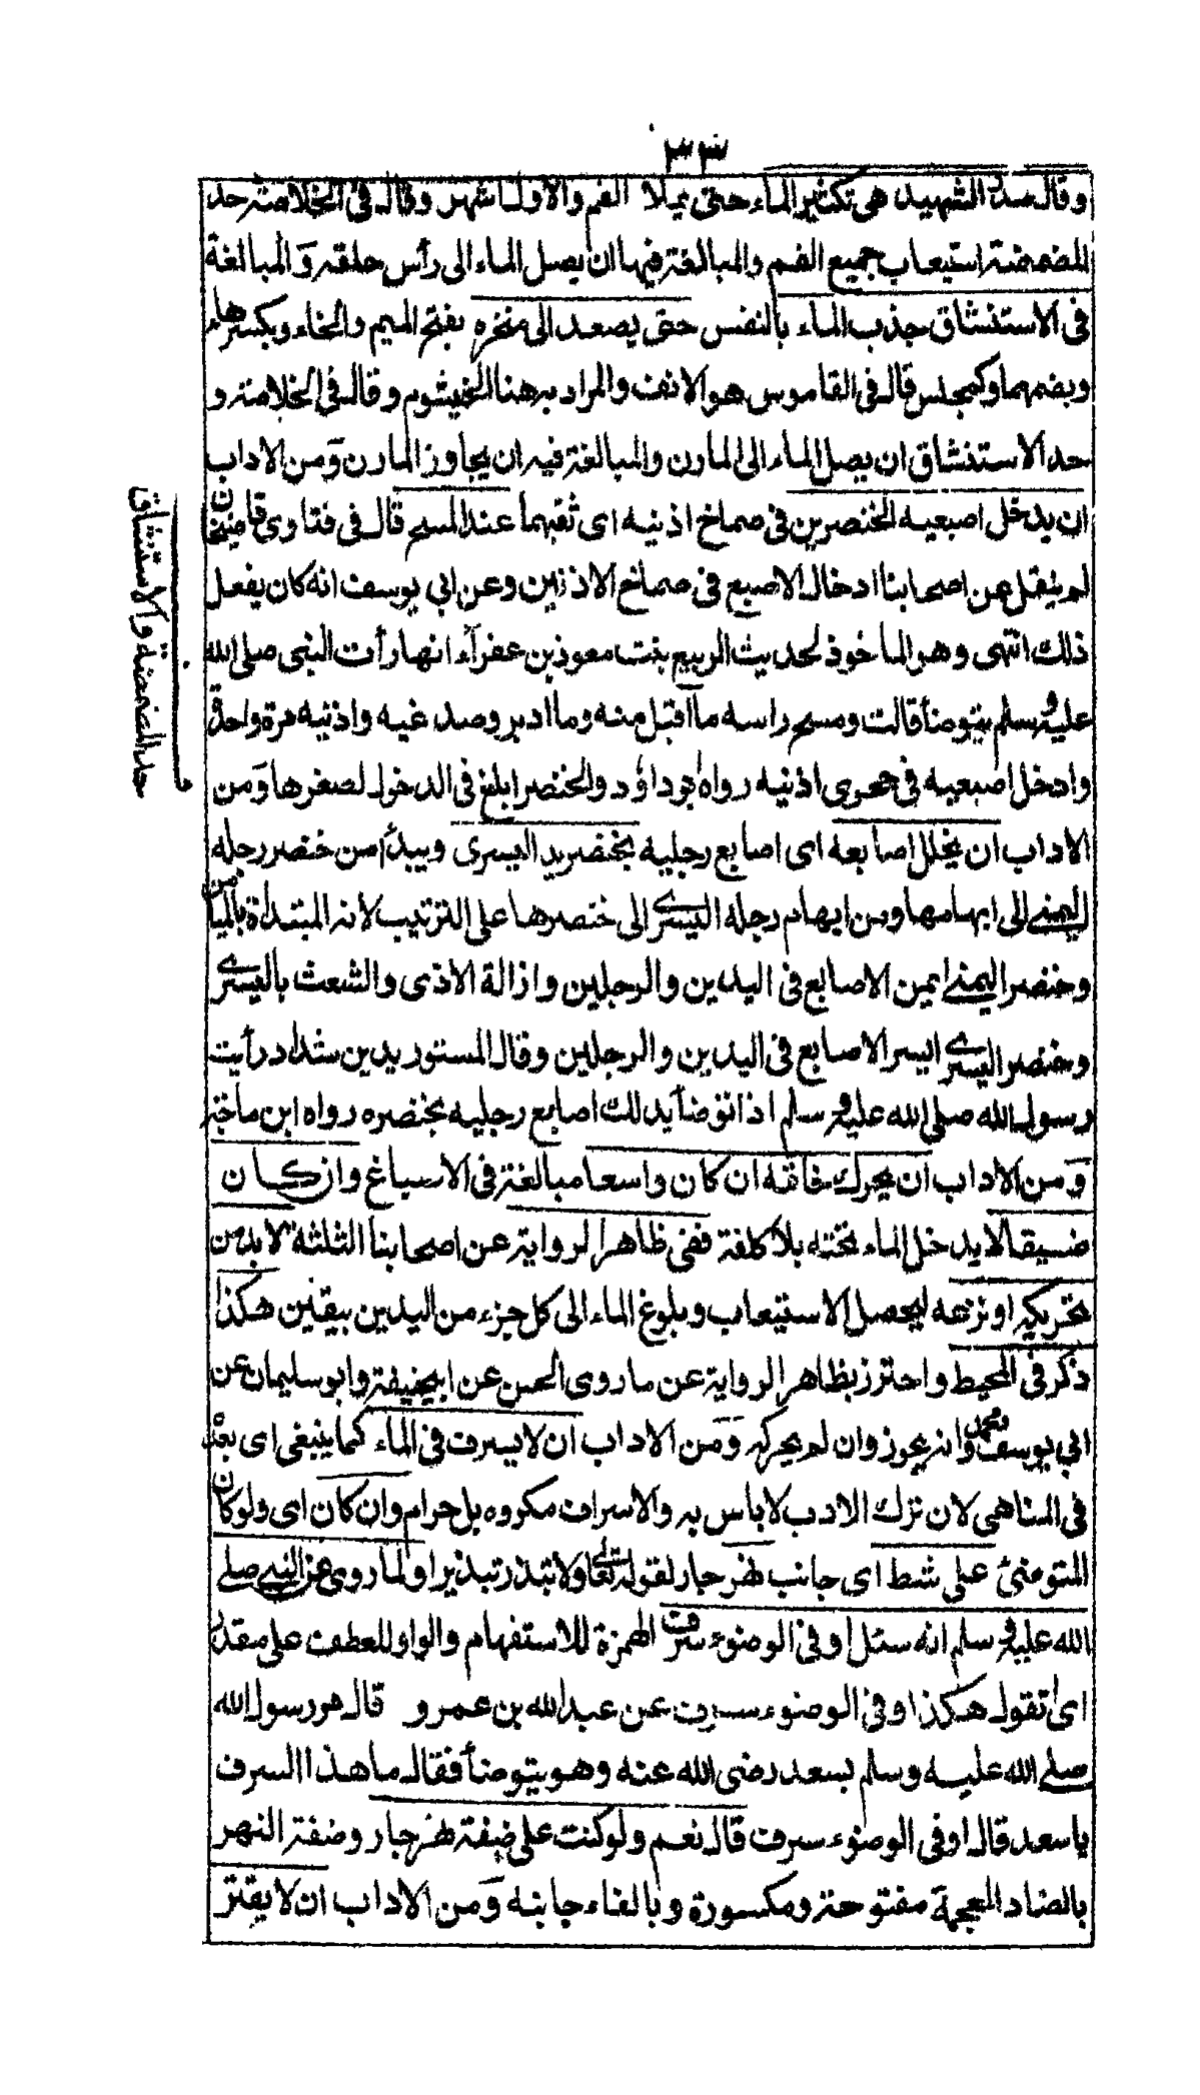 ٣٣
وقال صدر الشهيد هى تكثير الماء حتى يملا الفم والاول اشهر وقال فى الخلاصة حد
المضمضة استيعاب جميع الفم والمبالغة فيها ان يصل الماء الى رأس حلقه وَالمبالغة
فى الاستنشاق جذب الماء بالنفس حتى يصعد الى منخره بفتح الميم والخاء وبكسرهما
وبضمهما وكمجلس قال فى القاموس هو الانف والمراد به هنا الخيشوم وقال فى الخلاصة و
حد الاستنشاق ان يصل الماء الى المارن والمبالغة فيه ان يجاوز المارن وَمن الاداب
ان يدخل اصبعيه الخنصرين فى صماخ اذنيه اى ثقبهما عند المسح قال فى فتاوى قاضيخان
لم ينقل عن اصحابنا ادخال الاصبع فى صماخ الاذنين وعن ابي يوسف انه كان يفعل
ذلك انتهى وهو الماخوذ لحديث الربيع بنت معوذ بن عفرآء انها رأت النبى صلى الله
عليه وسلم يتوضأ قالت ومسح راسه ماآقبل منه وما ادبر وصدغيه واذنيه مرة واحدة
وادخل اصبعيه فى جحرى اذنيه رواه ابوداؤد والخنصر ابلغ فى الدخول لصغرها وَمن
الاداب ان يخلل اصابعه اى اصابع رجليه بخنصر يد اليسرى ويبدأ من خنصر رجله
اليمنى الى ابهامها ومن ابهام رجله اليسرى الى خنصرها على الترتيب لانه المبتداة بالميامن
وخنصر اليمنى ايمن الاصابع فى اليدين والرجلين وازالة الاذى والشعث باليسرى
وخنصر اليسرى ايسر الاصابع فى اليدين والرجلين وقال المستورد بن شداد رأيت
رسول الله صلى الله عليه وسلم اذا توضأ يدلك اصابع رجليه بخنصره رواه ابن ماجة
وَمن الاداب ان يحرك خاتمه ان كان واسعا مبالغة فى الاسباغ وان كان
ضيقا لا يدخل الماء تحته بلا كلفة ففى ظاهر الرواية عن اصحابنا الثلثة لابد من
تحريكه او نزعه ليحصل الاستيعاب وبلوغ الماء الى كل جزء من اليدين بيقين هكذا
ذكر فى المحيط واحترز بظاهر الرواية عن ما روى الحسن عن ابيحنيفة وابو سليمان عن
ابي يوسف ومحمد انه يجوز وان لم يحركه وَمن الاداب ان لا يسرف فى الماء كما ينبغى اى بعد
فى المناهى لان ترك الادب لا باس به والاسراف مكروه بل حرام وان كان اى ولو كان
المتوضئ على شط اى جانب نهر جار لقوله تعالى ولا تبذر تبذيرا ولما روى عن النبى صلى
الله عليه وسلم انه سئل اوفى الوضوء سرف الهمزة للاستفهام والواو للعطف على مقدر
اى اتقول هكذا وفى الوضوء سرف عن عبدالله بن عمرو قال مر رسول الله
صلى الله عليه وسلم بسعد رضى الله عنه وهو يتوضأ فقال ما هذا السرف
ياسعد قال اوفى الوضوء سرف قال نعم ولو كنت على ضفة نهر جار وضفة النهر
بالضاد المعجمة مفتوحة ومكسورة وبالفاء جانبه وَمن الاداب ان لا يقتر
حد المضمضة والاستنشاق